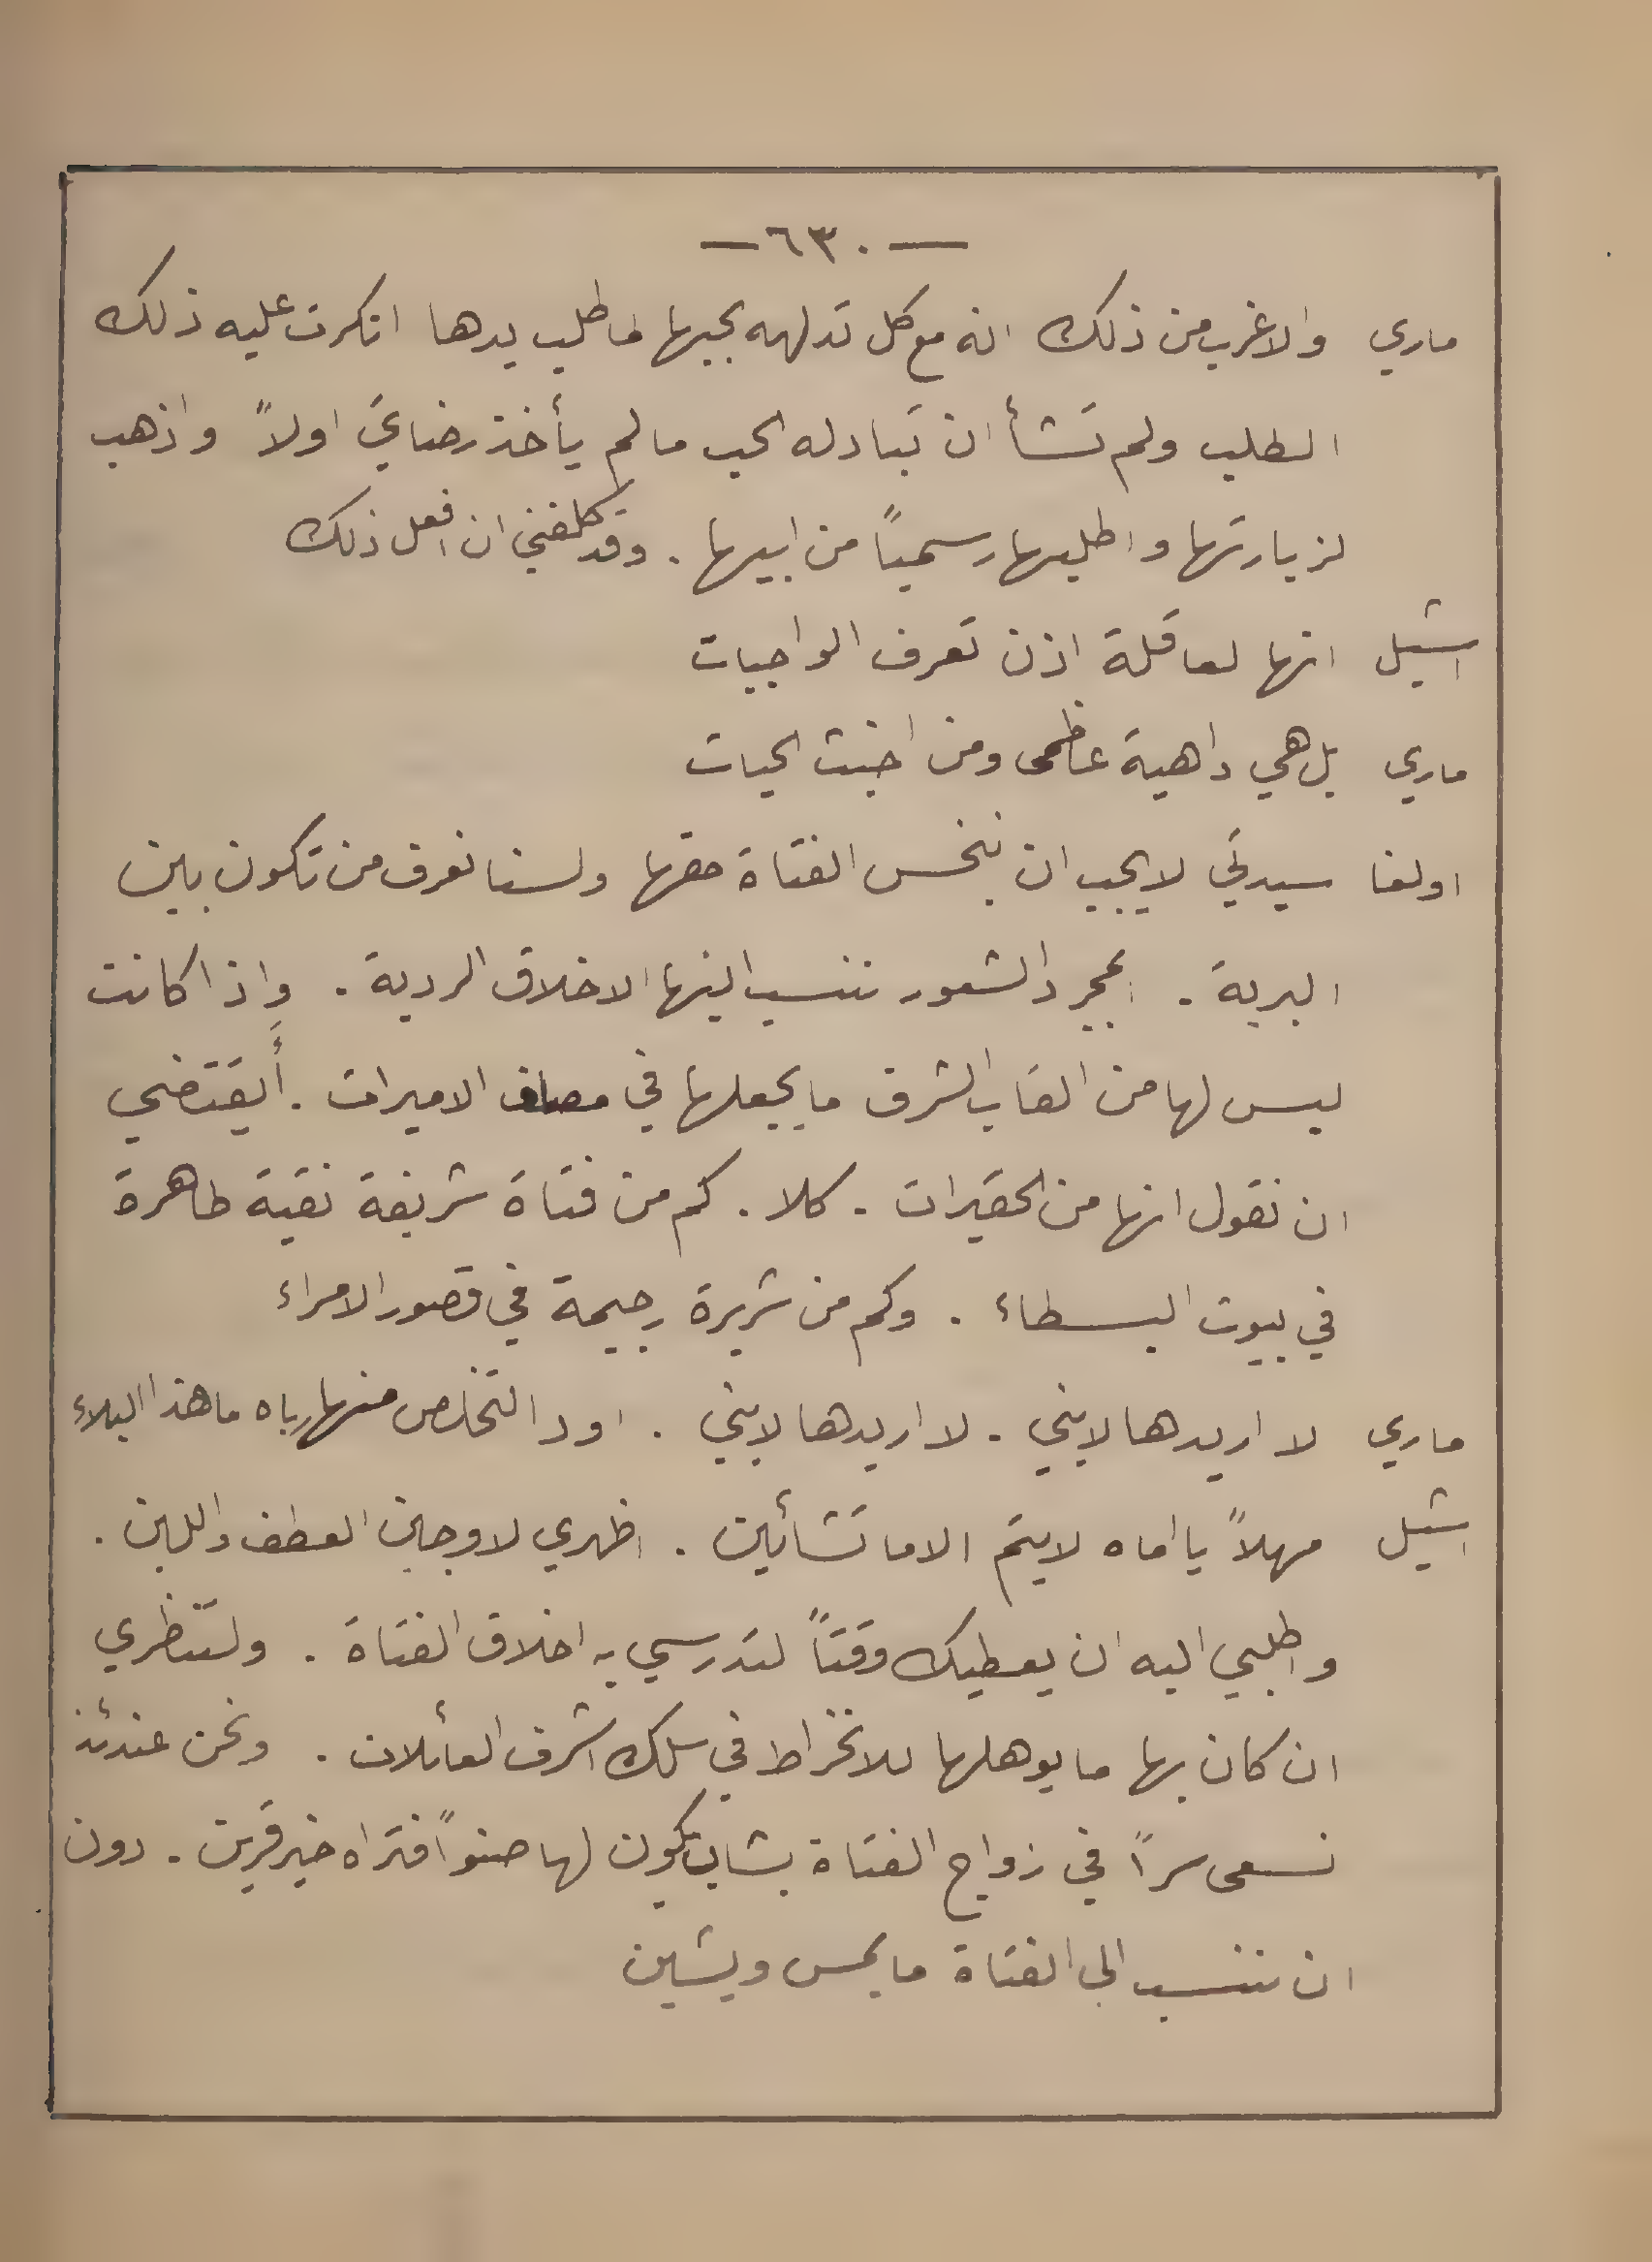 — ٦٣٠ —
ماري والاغرب من ذلك انه مع كل تدلهه بحبها لما طلب يدها انكرت عليه ذلك
الطلب ولم تشأ ان تبادله الحب ما لم يأخذ رضايَ اولاً واذهب
لزيارتها واطلبها رسمياً من ابيها . وقد كلفني ان افعل ذلك
اشيل انها لعاقلة اذن تعرف الواجبات
ماري بل هي داهية عظمى ومن اخبث الحيات
اولغا سيدتي لا يجب ان نبخس الفتاة حقها ولسنا نعرف من تكون بين
البرية . ابمجرد الشعور ننسب اليها الاخلاق الردية . وإذا كانت
ليس لها من القاب الشرف ما يجعلها في مصاف الاميرات . أَيقتضي
ان نقول انها من الحقيرات . كلا . كم من فتاة شريفة نقية طاهرة
في بيوت البسطاء . وكم من شريرة رجيمة في قصور الامراء
ماري لا اريدها لابني . لا اريدها لابني . اود التخلص منها رباه ما هذا البلاء
اشيل مهلاً يا اماه لا يتم الا ما تشائين . اظهري لاوجين العطف واللين .
واطلبي اليه ان يعطيك وقتاً لتدرسي به اخلاق الفتاة . ولتنظري
ان كان بها ما يوهلها للانخراط في سلك اشرف العائلات . ونحن عندئذ
نسعى سراً في زواج الفتاة بشاب يكون لها صنواً فتراه خير قرين . دون
ان ننسب الى الفتاة ما يمس ويشين